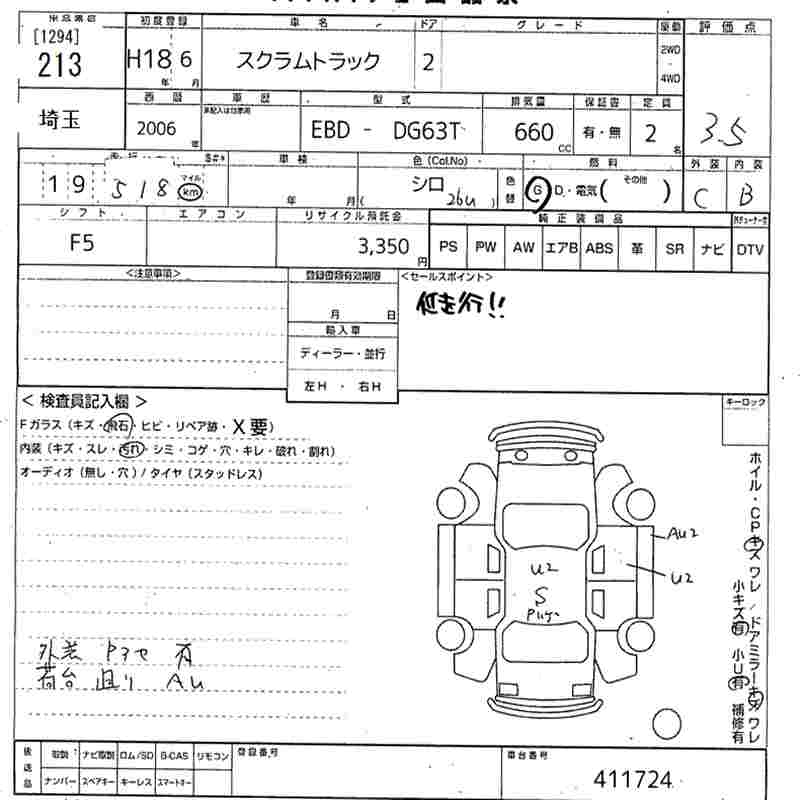 出品番号 初度登録 車名 ドア グレード 駆動 評価点
[1294]
213 H18 6 スクラムトラック 2 2WD
年 月 4WD
西暦 車歴 型式 排気量 保証書 定員
埼玉 未記入は自家用
2006 EBD - DG63T 660 有・無 2 3.5
年 CC 名
車検 色(Col.No) 燃料 外装 内装
19518 マイル km シロ 色替 G D・電気( その他 ) C B
年 月 ( 26U )
シフト エアコン リサイクル預託金 純正装備品
F5 3,350 円 PS PW AW エアB ABS 革 SR ナビ DTV
<注意事項> 登録書類有効期限 <セールスポイント>
月 日
輸入車
ディーラー・並行
左H ・ 右H
<検査員記入欄> キーロック
Fガラス(キズ・飛石・ヒビ・リペア跡・X要)
内装(キズ・スレ・汚れ・シミ・コゲ・穴・キレ・破れ・割れ)
オーディオ(無し・穴)/タイヤ(スタッドレス)
AU2
U2
U2
S
ホイル・CPキズ ワレ/ドアミラーキズ ワレ
小キズ有 小U有 補修有
外装 有
荷台 AU
後送品 取説 ナビ取説 ロム/SD B-CAS リモコン 登録番号 車台番号
ナンバー スペアキー キーレス スマートキー
411724